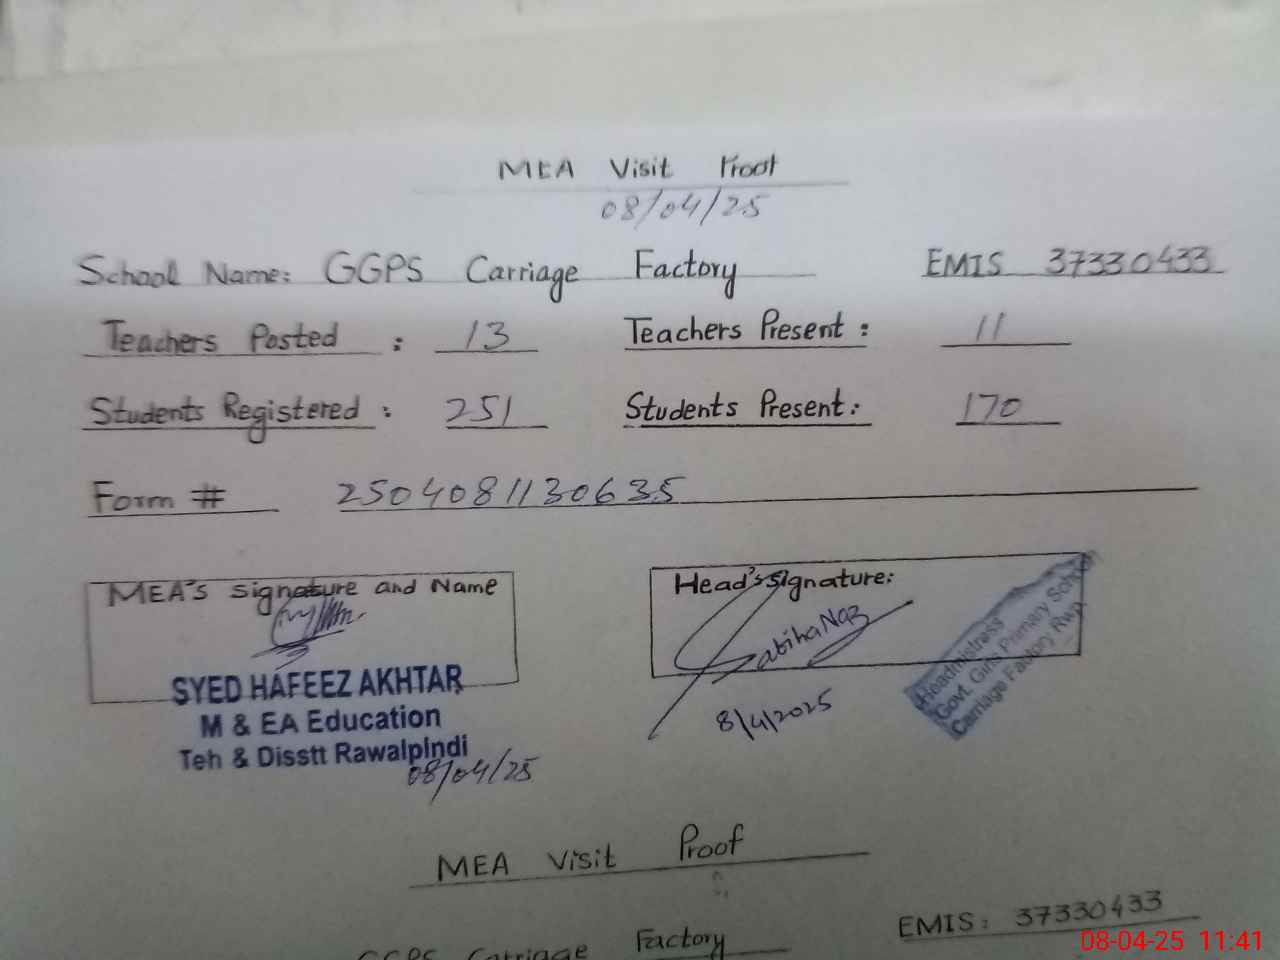 MEA Visit Proof
08/04/25
School Name: GGPS Carriage Factory EMIS 37330433
Teachers Posted : 13 Teachers Present : 11
Students Registered : 251 Students Present : 170
Form # 2504081130635
MEA's signature and Name
Head's signature:
Sabiha Naz
SYED HAFEEZ AKHTAR
M & EA Education
Teh & Disstt RawalpIndi
08/04/25
8/4/2025
Headmistress
Govt. Girls Primary School
Carriage Factory Rwp.
MEA Visit Proof
GGPS Carriage Factory EMIS: 37330433
08-04-25 11:41